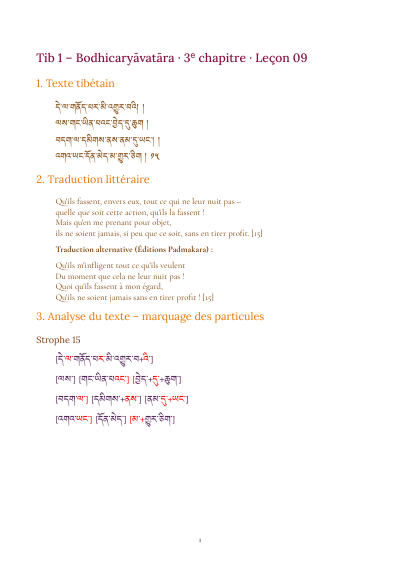 Tib 1 – Bodhicaryāvatāra · 3e chapitre · Leçon 09
1. Texte tibétain
དེ་ལ་གནོད་པར་མི་འགྱུར་བའི། །
ལས་གང་ཡིན་པའང་བྱེད་དུ་ཆུག །
བདག་ལ་དམིགས་ནས་ནམ་དུ་ཡང་། །
འགའ་ཡང་དོན་མེད་མ་གྱུར་ཅིག ། ༡༥
2. Traduction littéraire
Qu'ils fassent, envers eux, tout ce qui ne leur nuit pas –
quelle que soit cette action, qu'ils la fassent !
Mais qu'en me prenant pour objet,
ils ne soient jamais, si peu que ce soit, sans en tirer profit. [15]
Traduction alternative (Éditions Padmakara) :
Qu'ils m'infligent tout ce qu'ils veulent
Du moment que cela ne leur nuit pas !
Quoi qu'ils fassent à mon égard,
Qu'ils ne soient jamais sans en tirer profit ! [15]
3. Analyse du texte – marquage des particules
Strophe 15
[དེ་ལ་གནོད་པར་མི་འགྱུར་བ+འི་]
[ལས་] [གང་ཡིན་པའང་] [བྱེད་+དུ་+ཆུག་]
[བདག་ལ་] [དམིགས་+ནས་] [ནམ་དུ་+ཡང་]
[འགའ་ཡང་] [དོན་མེད་] [མ་+གྱུར་ཅིག་]
1